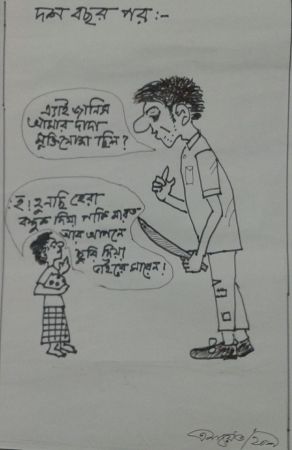 দশ বছর পর :-
এ্যাই জানিস
আমার দাদা
মুক্তিযোদ্ধা ছিল?
হ! হুনছি হেরা
বন্দুক দিয়া পাকি মারত
আর আপনে
ছুরি দিয়া
ভাইরে মারেন!